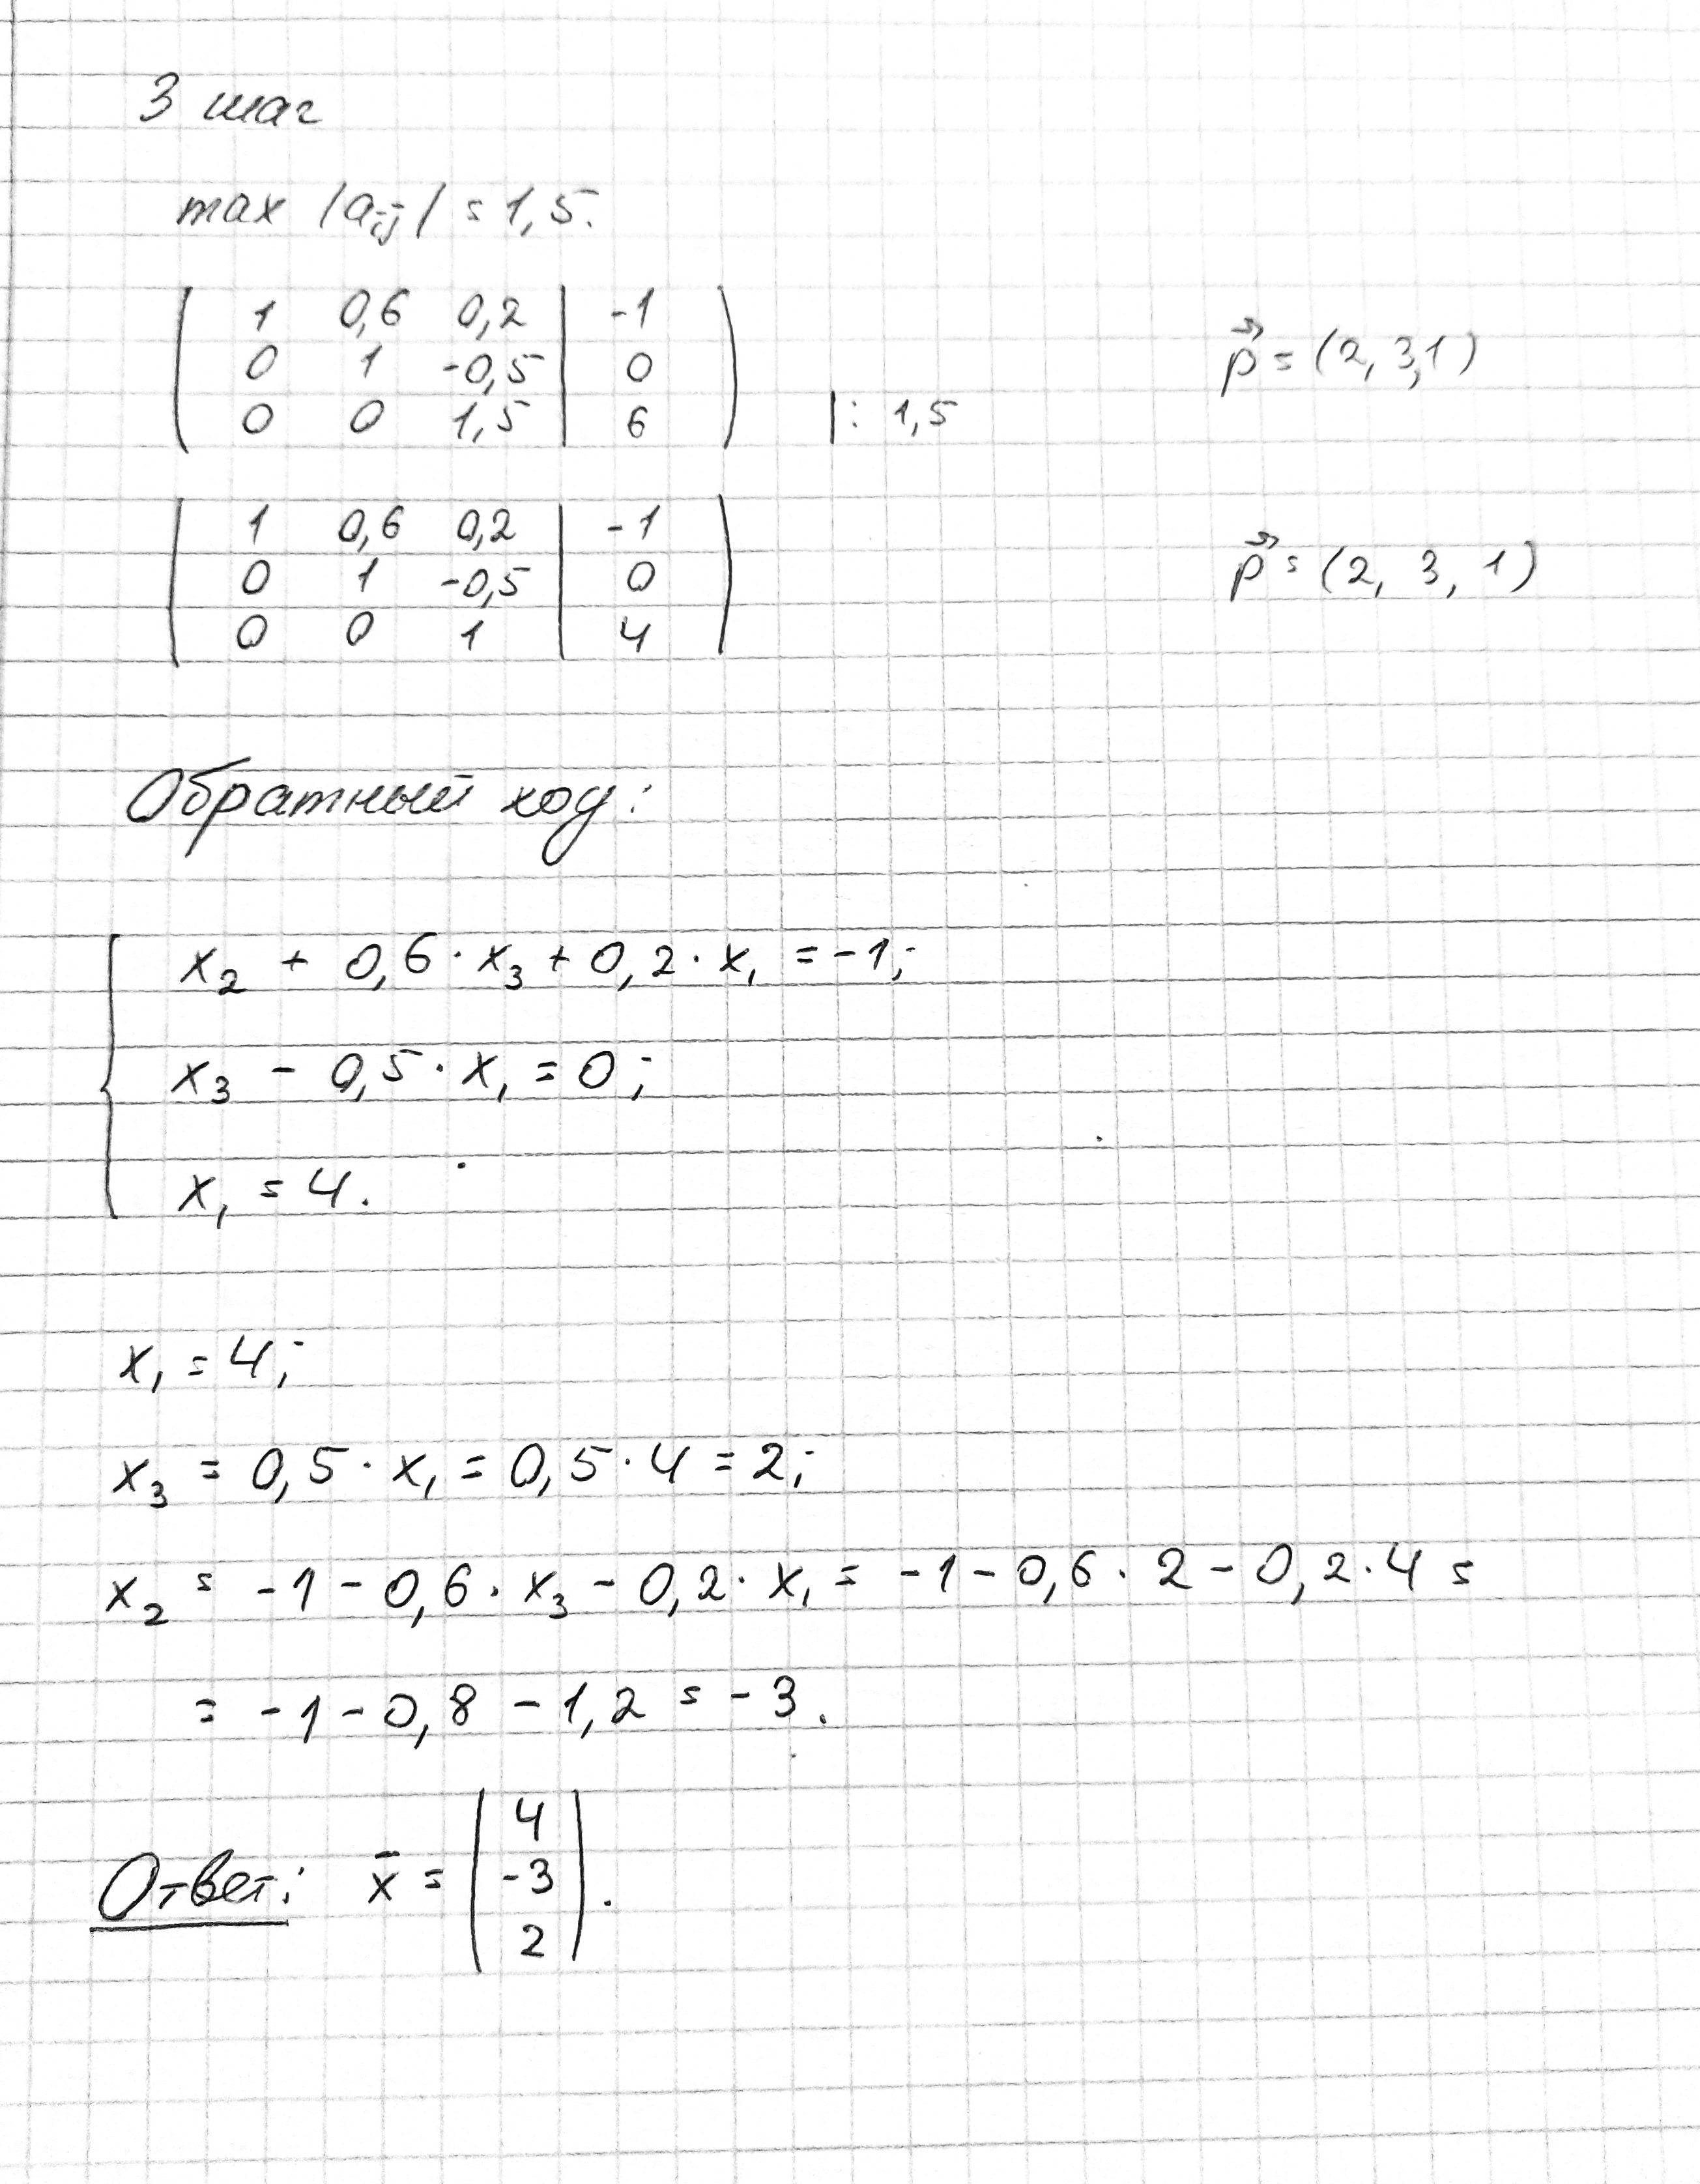 3 шаг
max |aij| = 1,5.
1 0,6 0,2 | -1
0 1 -0,5 | 0 p⃗ = (2, 3,1)
0 0 1,5 | 6 |: 1,5
1 0,6 0,2 | -1
0 1 -0,5 | 0 p⃗ = (2, 3, 1)
0 0 1 | 4
Обратный ход:
x₂ + 0,6 · x₃ + 0,2 · x₁ = -1;
x₃ - 0,5 · x₁ = 0;
x₁ = 4.
x₁ = 4;
x₃ = 0,5 · x₁ = 0,5 · 4 = 2;
x₂ = -1 - 0,6 · x₃ - 0,2 · x₁ = -1 - 0,6 · 2 - 0,2 · 4 =
= -1 - 0,8 - 1,2 = -3.
4
Ответ: x̄ = -3 .
2